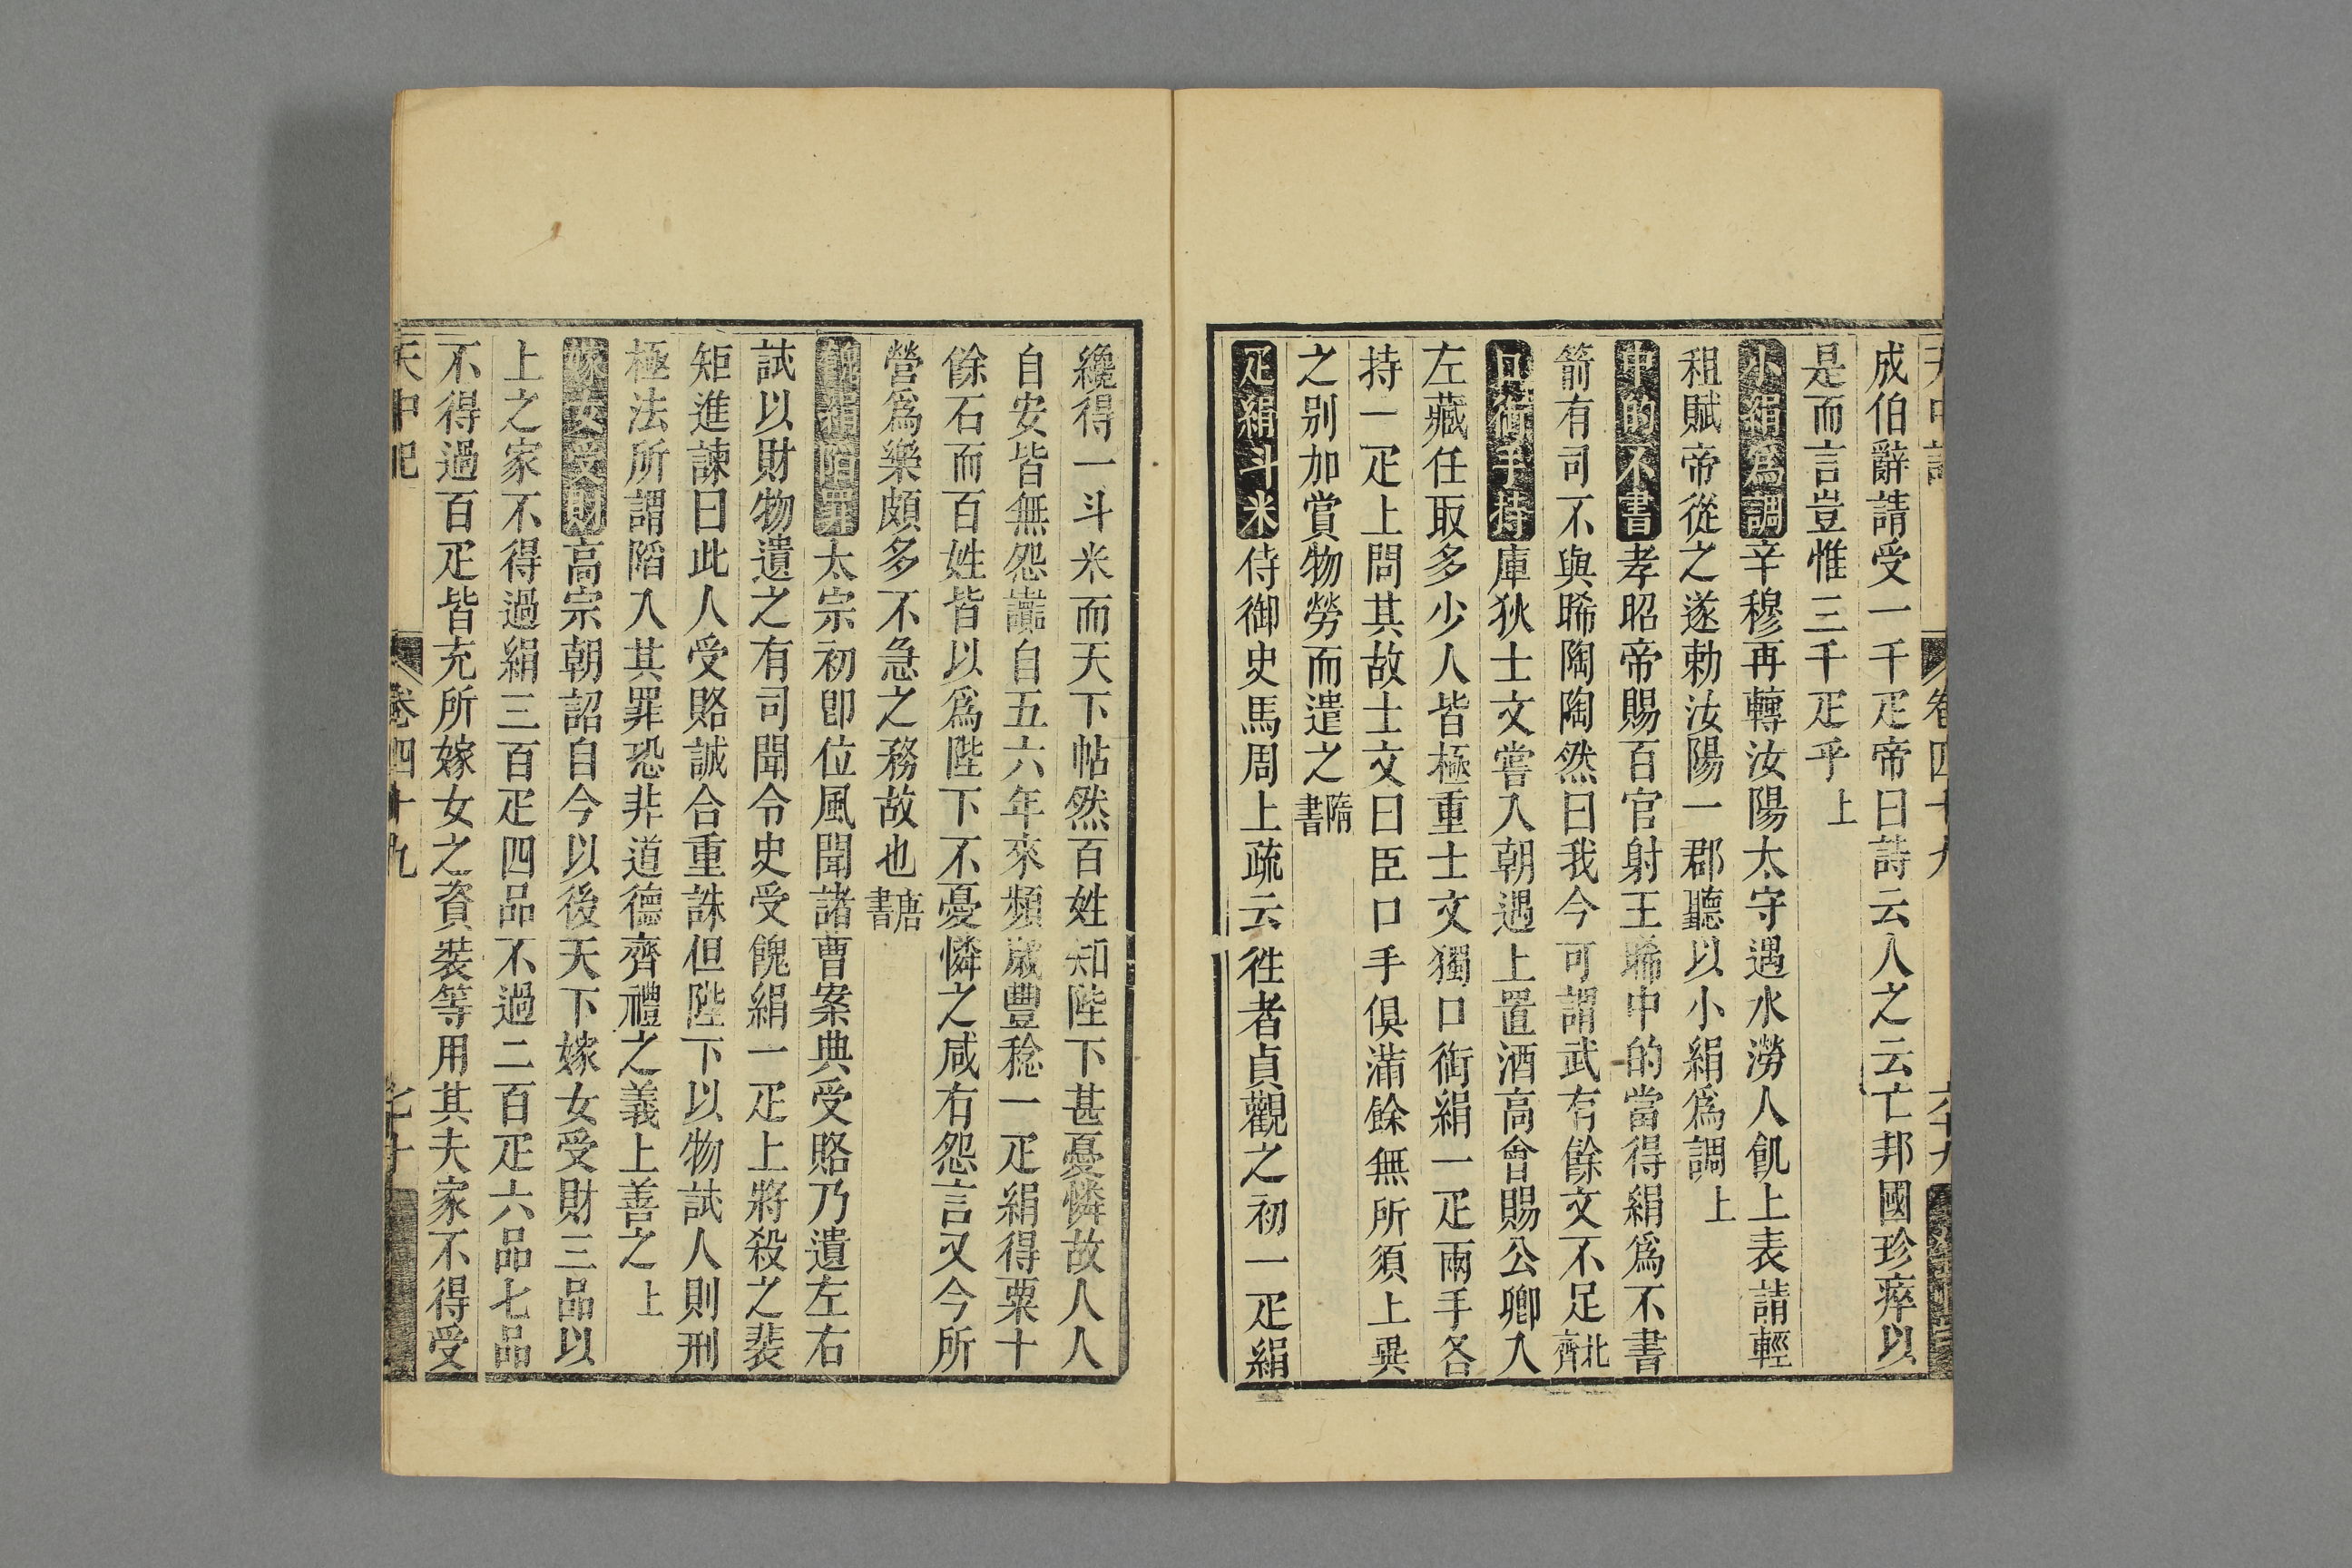 成伯辭請受一千疋帝曰詩云人之云亡邦國珍瘁以
是而言豈惟三千疋乎上
小絹爲調辛穆再轉汝陽太守遇水澇人飢上表請輕
租賦帝從之遂勅汝陽一郡聽以小絹爲調上
中的不書孝昭帝賜百官射王晞中的當得絹爲不書
箭有司不與晞陶陶然曰我今可謂武有餘文不足北齊
口銜手持庫狄士文嘗入朝遇上置酒高會賜公卿入
左藏任取多少人皆極重士文獨口銜絹一疋兩手各
持一疋上問其故士文曰臣口手俱滿餘無所須上異
之别加賞物勞而遣之隋書
疋絹斗米侍御史馬周上疏云徃者貞觀之初一疋絹
纔得一斗米而天下帖然百姓知陛下甚憂憐故人人
自安皆無怨讟自五六年來頻歲豐稔一疋絹得粟十
餘石而百姓皆以爲陛下不憂憐之咸有怨言又今所
營爲樂頗多不急之務故也唐書
餽絹陷罪太宗初卽位風聞諸曹案典受賂乃遣左右
試以財物遺之有司聞令史受餽絹一疋上將殺之裴
矩進諫曰此人受賂誠合重誅但陛下以物試人則刑
極法所謂䧟入其罪恐非道德齊禮之義上善之上
嫁女受財高宗朝詔自今以後天下嫁女受財三品以
上之家不得過絹三百疋四品不過二百疋六品七品
不得過百疋皆充所嫁女之資裝等用其夫家不得受
天中記
卷四十九
七十